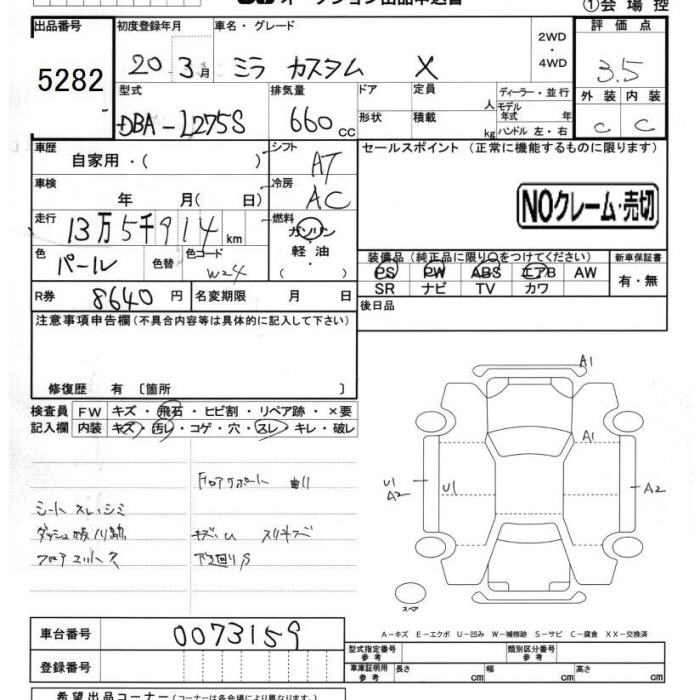 オークション出品申込書
①会場控
出品番号
5282
初度登録年月
20 3月
車名・グレード
ミラ カスタム X
2WD
・
4WD
評価点
3.5
外装 内装
C C
型式
DBA-L275S
排気量
660 cc
ドア
形状
定員 人
積載 kg
ディーラー・並行
モデル年式 年
ハンドル 左・右
車歴
自家用・( )
シフト
AT
車検
年 月( 日)
冷房
AC
走行
13万5千914km
燃料
ガソリン
軽油
・
色
パール
色替
色コード
W24
R券 8640円
名変期限 月 日
セールスポイント (正常に機能するものに限ります)
NOクレーム・売切
装備品(純正品に限り○をつけてください)
PS PW ABS エアB AW
SR ナビ TV カワ
新車保証書
有・無
後日品
注意事項申告欄(不具合内容等は具体的に記入して下さい)
修復歴 有〔箇所 〕
検査員
記入欄
FW キズ・飛石・ヒビ割・リペア跡・×要
内装 キズ・汚レ・コゲ・穴・スレ・キレ・破レ
フロアサポート 曲り
シート スレ・シミ
A1
A1
U1
A2
U1
A2
スペア
A-キズ E-エクボ U-凹み W-補修跡 S-サビ C-腐食 XX-交換済
車台番号
0073159
登録番号
型式指定番号
参考
類別区分番号
参考
車庫証明用
参考
長さ cm
幅 cm
高さ cm
希望出品コーナー(コーナーは各会場により異なります)